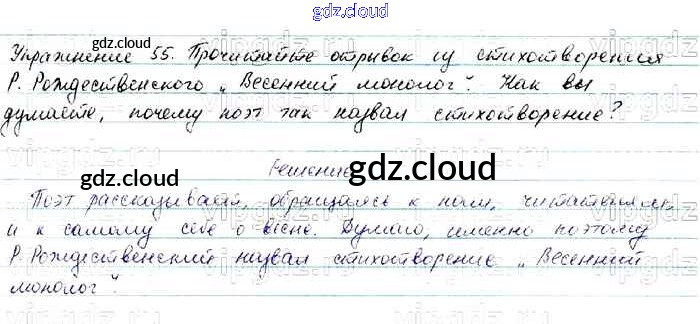 gdz.cloud
gdz.cloud
Упражнение 55. Прочитайте отрывок из стихотворения
Р. Рождественского „Весенний монолог". Как вы
думаете, почему поэт так назвал стихотворение?
gdz.cloud
Решение
gdz.cloud
Поэт рассказывает, обращаясь к нам, читателям,
и к самому себе о весне. Думаю, именно поэтому
Р. Рождественский назвал стихотворение „Весенний
монолог".
gdz.cloud
gdz.cloud